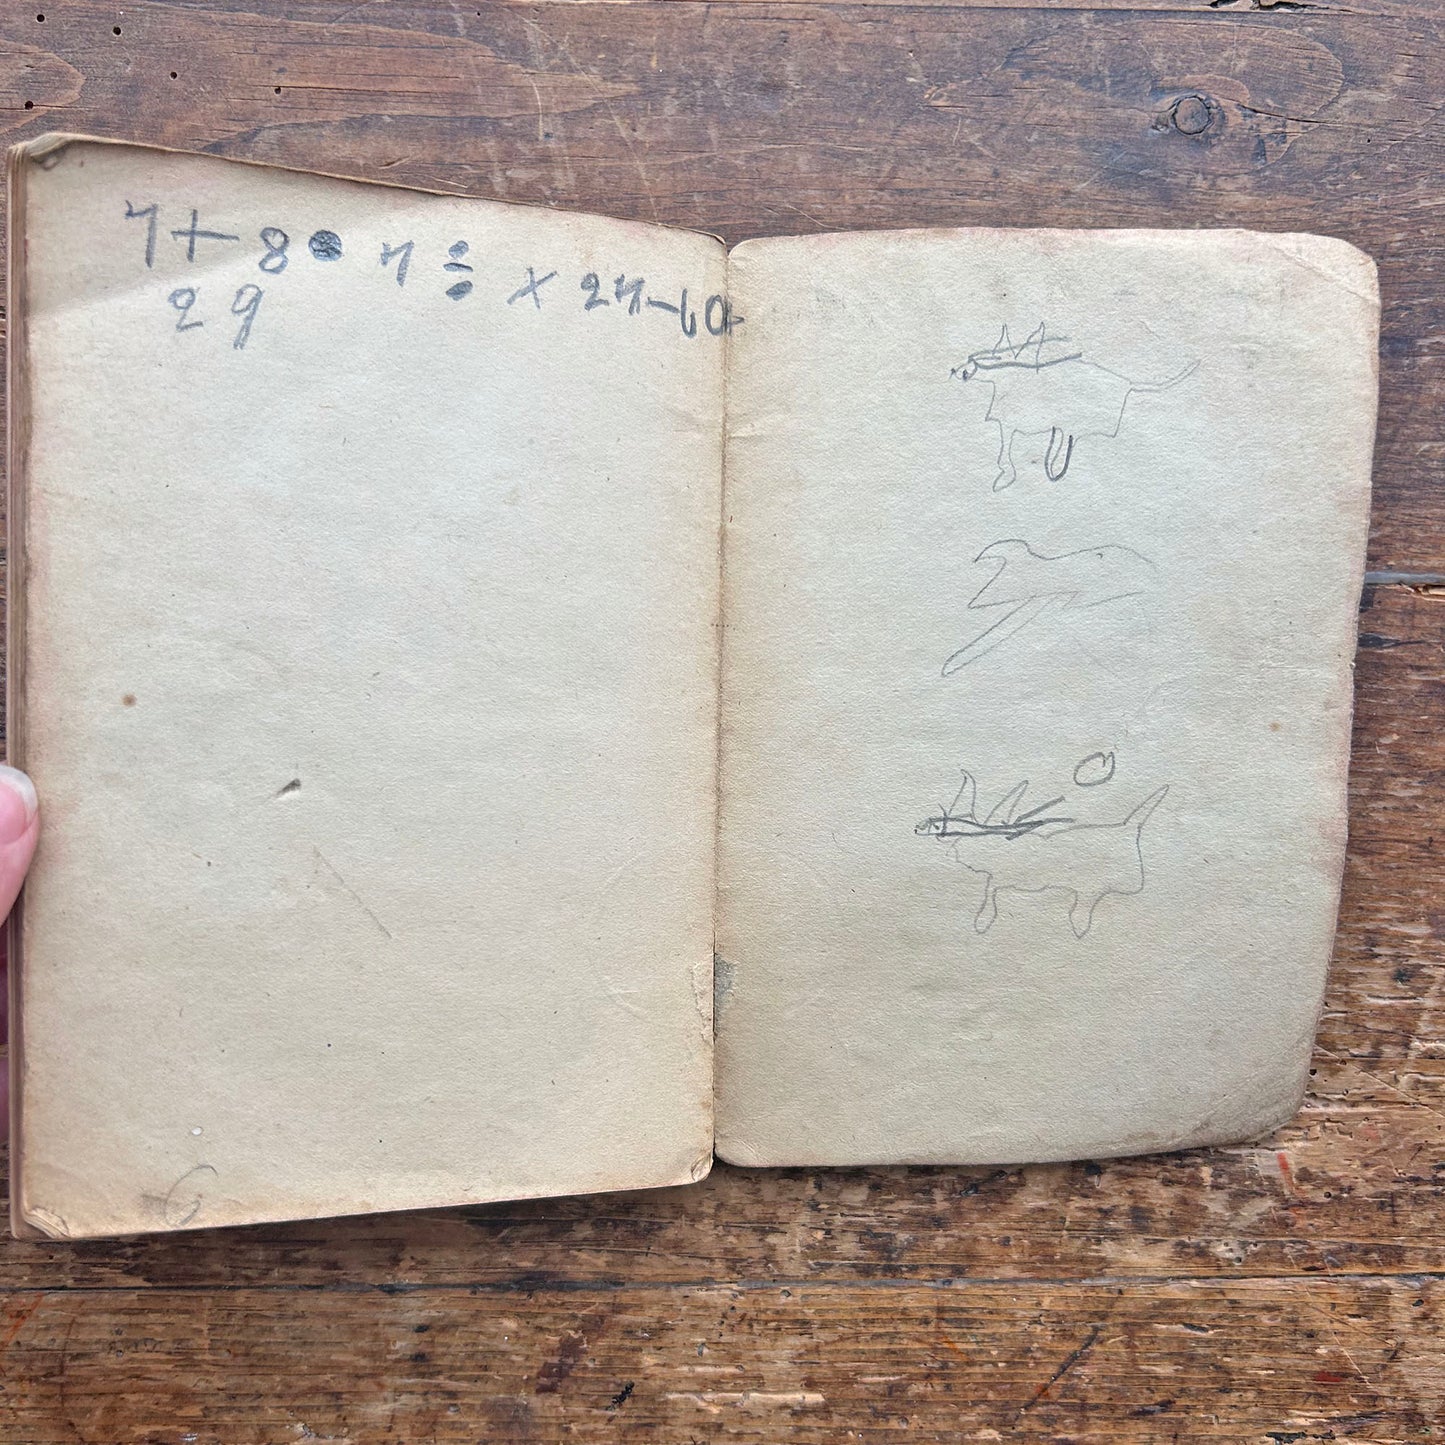 7+8• 7÷ × 27-60
29